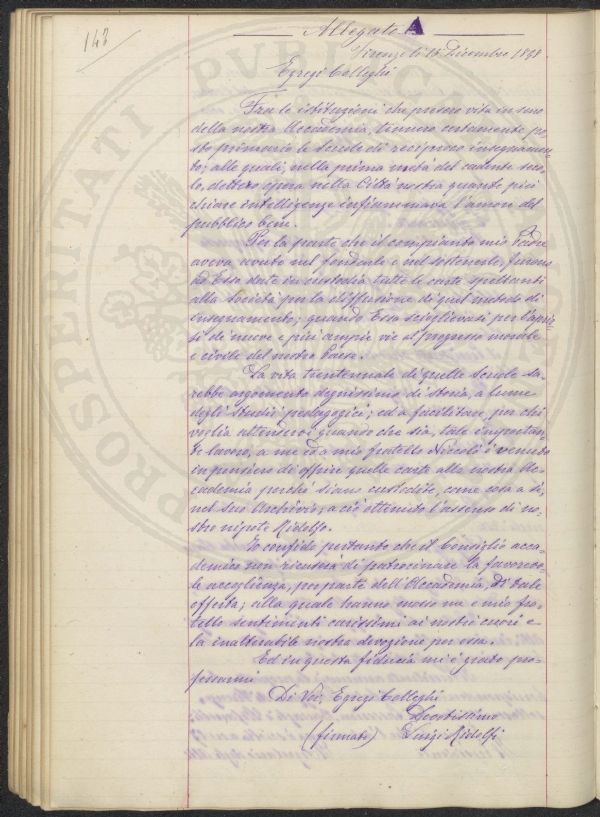 143
Allegato A
Firenze li 15 Dicembre 1898
Egregi Colleghi
Fra le istituzioni che presero vita in seno
della nostra Accademia, tennero certamente po-
sto primario le Scuole di reciproco insegnamen-
to; alle quali, nella prima metà del cadente seco-
lo, dettero opera nella Città nostra quante più
chiare intelligenze infiammava l'amore del
pubblico bene.
Per la parte che il compianto mio Padre
aveva avuto nel fondarle e nel sostenerle, furono
ad Esso date in custodia tutte le carte spettanti
alla Società per la diffusione di quel metodo di
insegnamento; quando Essa scioglievasi per l'aprir-
si di nuove e più ampie vie al progresso morale
e civile del nostro Paese.
La vita trentennale di quelle Scuole sa-
rebbe argomento degnissimo di storia, a lume
degli studii pedagogici; ed a facilitare, per chi
voglia attendervi quando che sia, tale importan-
te lavoro, a me ed a mio fratello Niccolò è venuto
in pensiero di offrire quelle carte alla nostra Ac-
cademia perché siano custodite, come cosa a sé,
nel suo Archivio; a ciò ottenuto l'assenso di no-
stro nipote Ridolfo.
Io confido pertanto che il Consiglio acca-
demico non ricuserà di patrocinare la favorevo-
le accoglienza, per parte dell'Accademia, di tale
offerta; alla quale hanno mosso me e mio fra-
tello sentimenti carissimi ai nostri cuori e
la inalterabile nostra devozione per essa.
Ed in questa fiducia mi è grato pro-
fessarmi
Di Voi, Egregi Colleghi
Devotissimo
(firmato) Luigi Ridolfi
PVBLICAE
PROSPERITATI